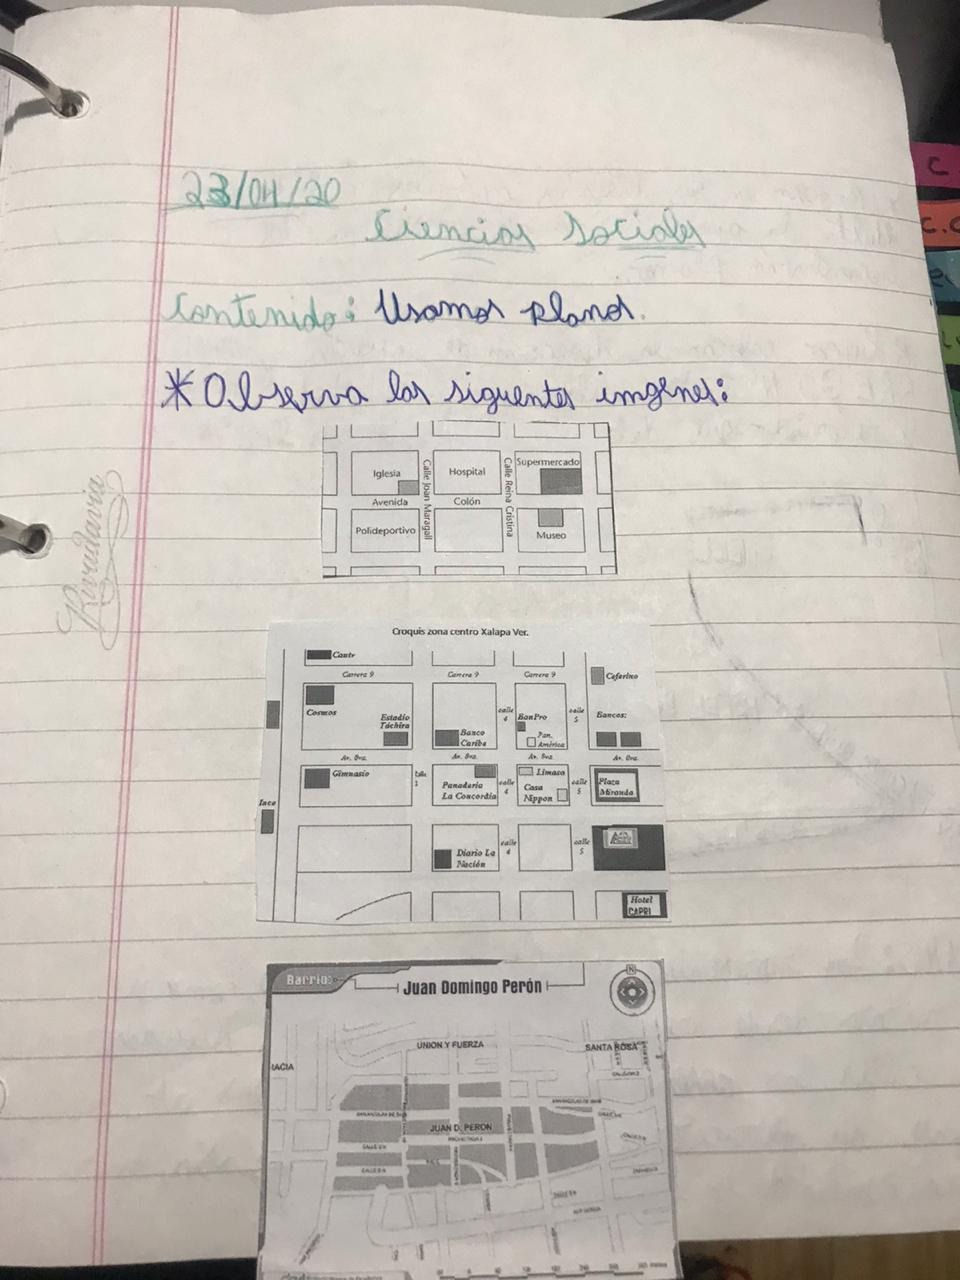 23/04/20
Ciencias Sociales
Contenido: Usamos planos.
* Observa las siguentes imgenes:
Rivadavia
C
C.C
Iglesia
Hospital
Supermercado
Calle Joan Maragall
Calle Reina Cristina
Avenida Colón
Polideportivo
Museo
Croquis zona centro Xalapa Ver.
Cantv
Carrera 9 Carrera 9 Carrera 9
Ceferino
Cosmos
Estadio Táchira
Banco Caribe
calle 4
BanPro
Pan. América
calle 5
Bancos:
Av. 8va. Av. 8va. Av. 8va. Av. 8va.
Gimnasio
calle 3
Panaderia La Concordia
calle 4
Limaso
Casa Nippon
calle 5
Plaza Miranda
Ince
Diario La Nación
calle 4
calle 5
Hotel CAPRI
Barrio:
Juan Domingo Perón
N
UNION Y FUERZA
SANTA ROSA
IACIA
JUAN D. PERON
CALLE S/N
CALLE S/N